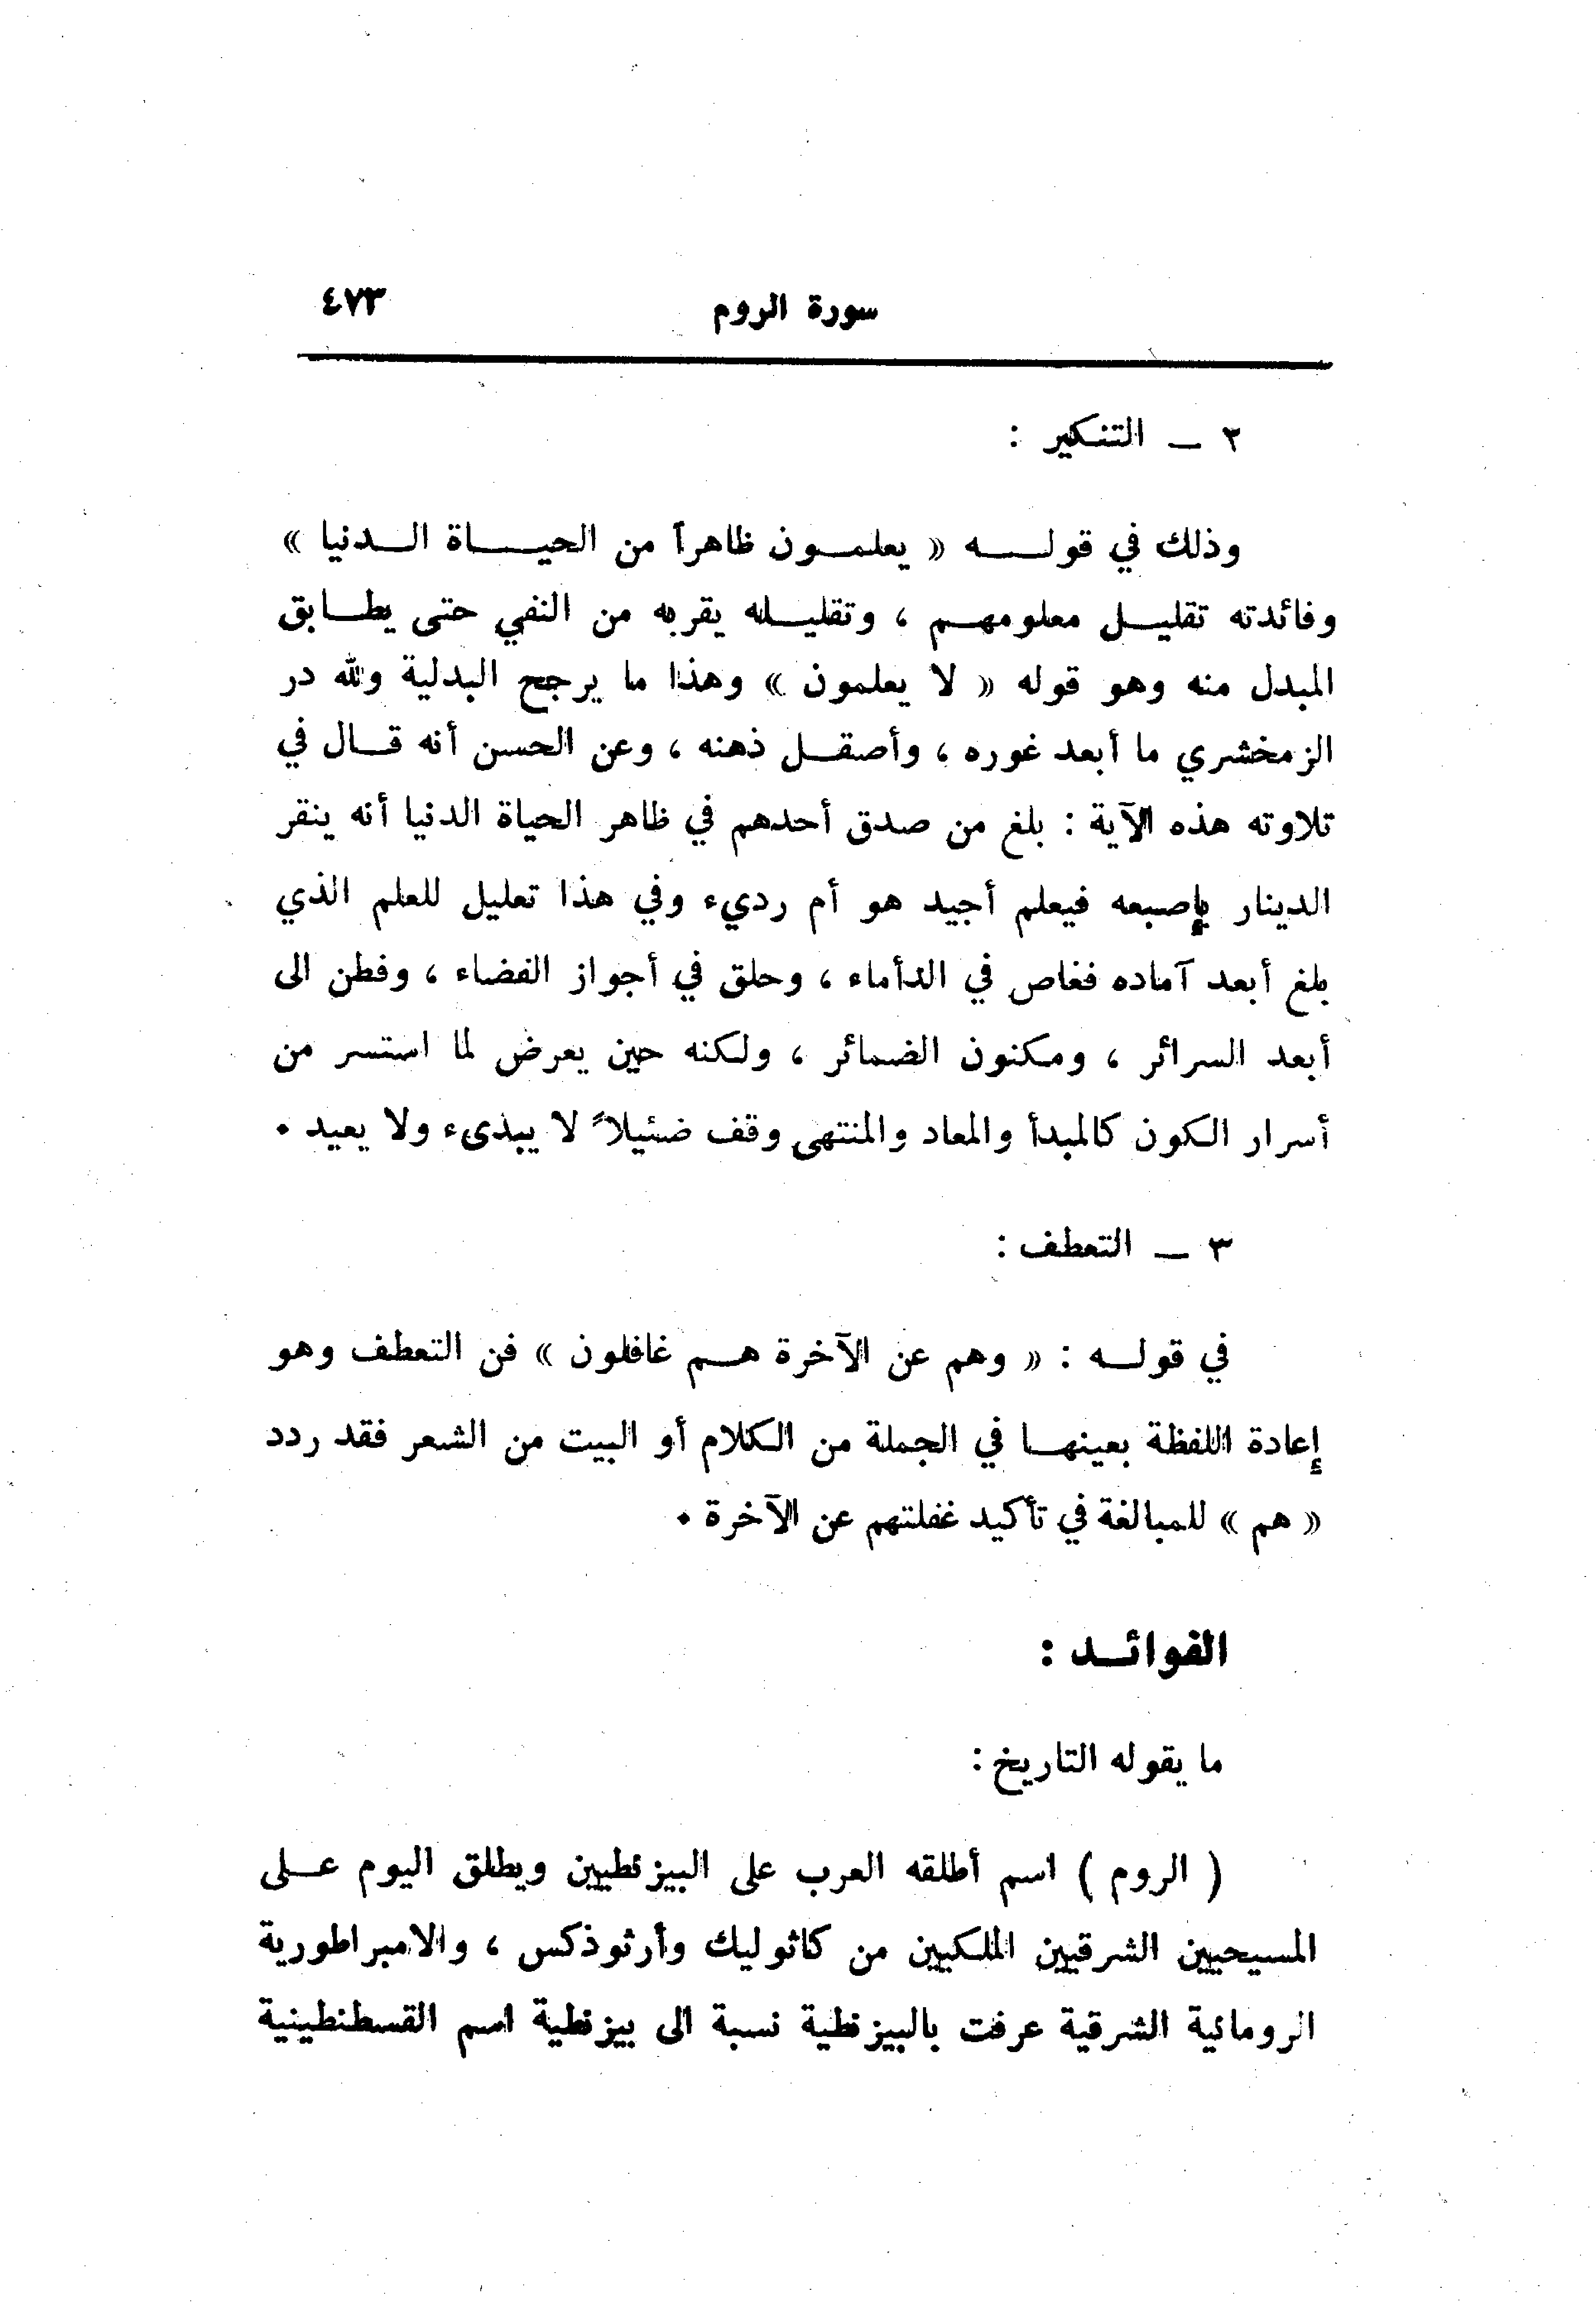 سورة الروم ٤٧٣
٢ – التنكير :
وذلك في قوله « يعلمون ظاهراً من الحياة الدنيا »
وفائدته تقليل معلومهم ، وتقليله يقربه من النفي حتى يطابق
المبدل منه وهو قوله « لا يعلمون » وهذا ما يرجح البدلية ولله در
الزمخشري ما أبعد غوره ، وأصقل ذهنه ، وعن الحسن أنه قال في
تلاوته هذه الآية : بلغ من صدق أحدهم في ظاهر الحياة الدنيا أنه ينقر
الدينار بإصبعه فيعلم أجيد هو أم رديء وفي هذا تعليل للعلم الذي
بلغ أبعد آماده فغاص في الدأماء ، وحلق في أجواز الفضاء ، وفطن الى
أبعد السرائر ، ومكنون الضمائر ، ولكنه حين يعرض لما استسر من
أسرار الكون كالمبدأ والمعاد والمنتهى وقف ضئيلاً لا يبدىء ولا يعيد .
٣ – التعطف :
في قوله : « وهم عن الآخرة هم غافلون » فن التعطف وهو
إعادة اللفظة بعينها في الجملة من الكلام أو البيت من الشعر فقد ردد
« هم » للمبالغة في تأكيد غفلتهم عن الآخرة .
الفوائد :
ما يقوله التاريخ :
( الروم ) اسم أطلقه العرب على البيزنطيين ويطلق اليوم على
المسيحيين الشرقيين الملكيين من كاثوليك وأرثوذكس ، والامبراطورية
الرومانية الشرقية عرفت بالبيزنطية نسبة الى بيزنطية اسم القسطنطينية